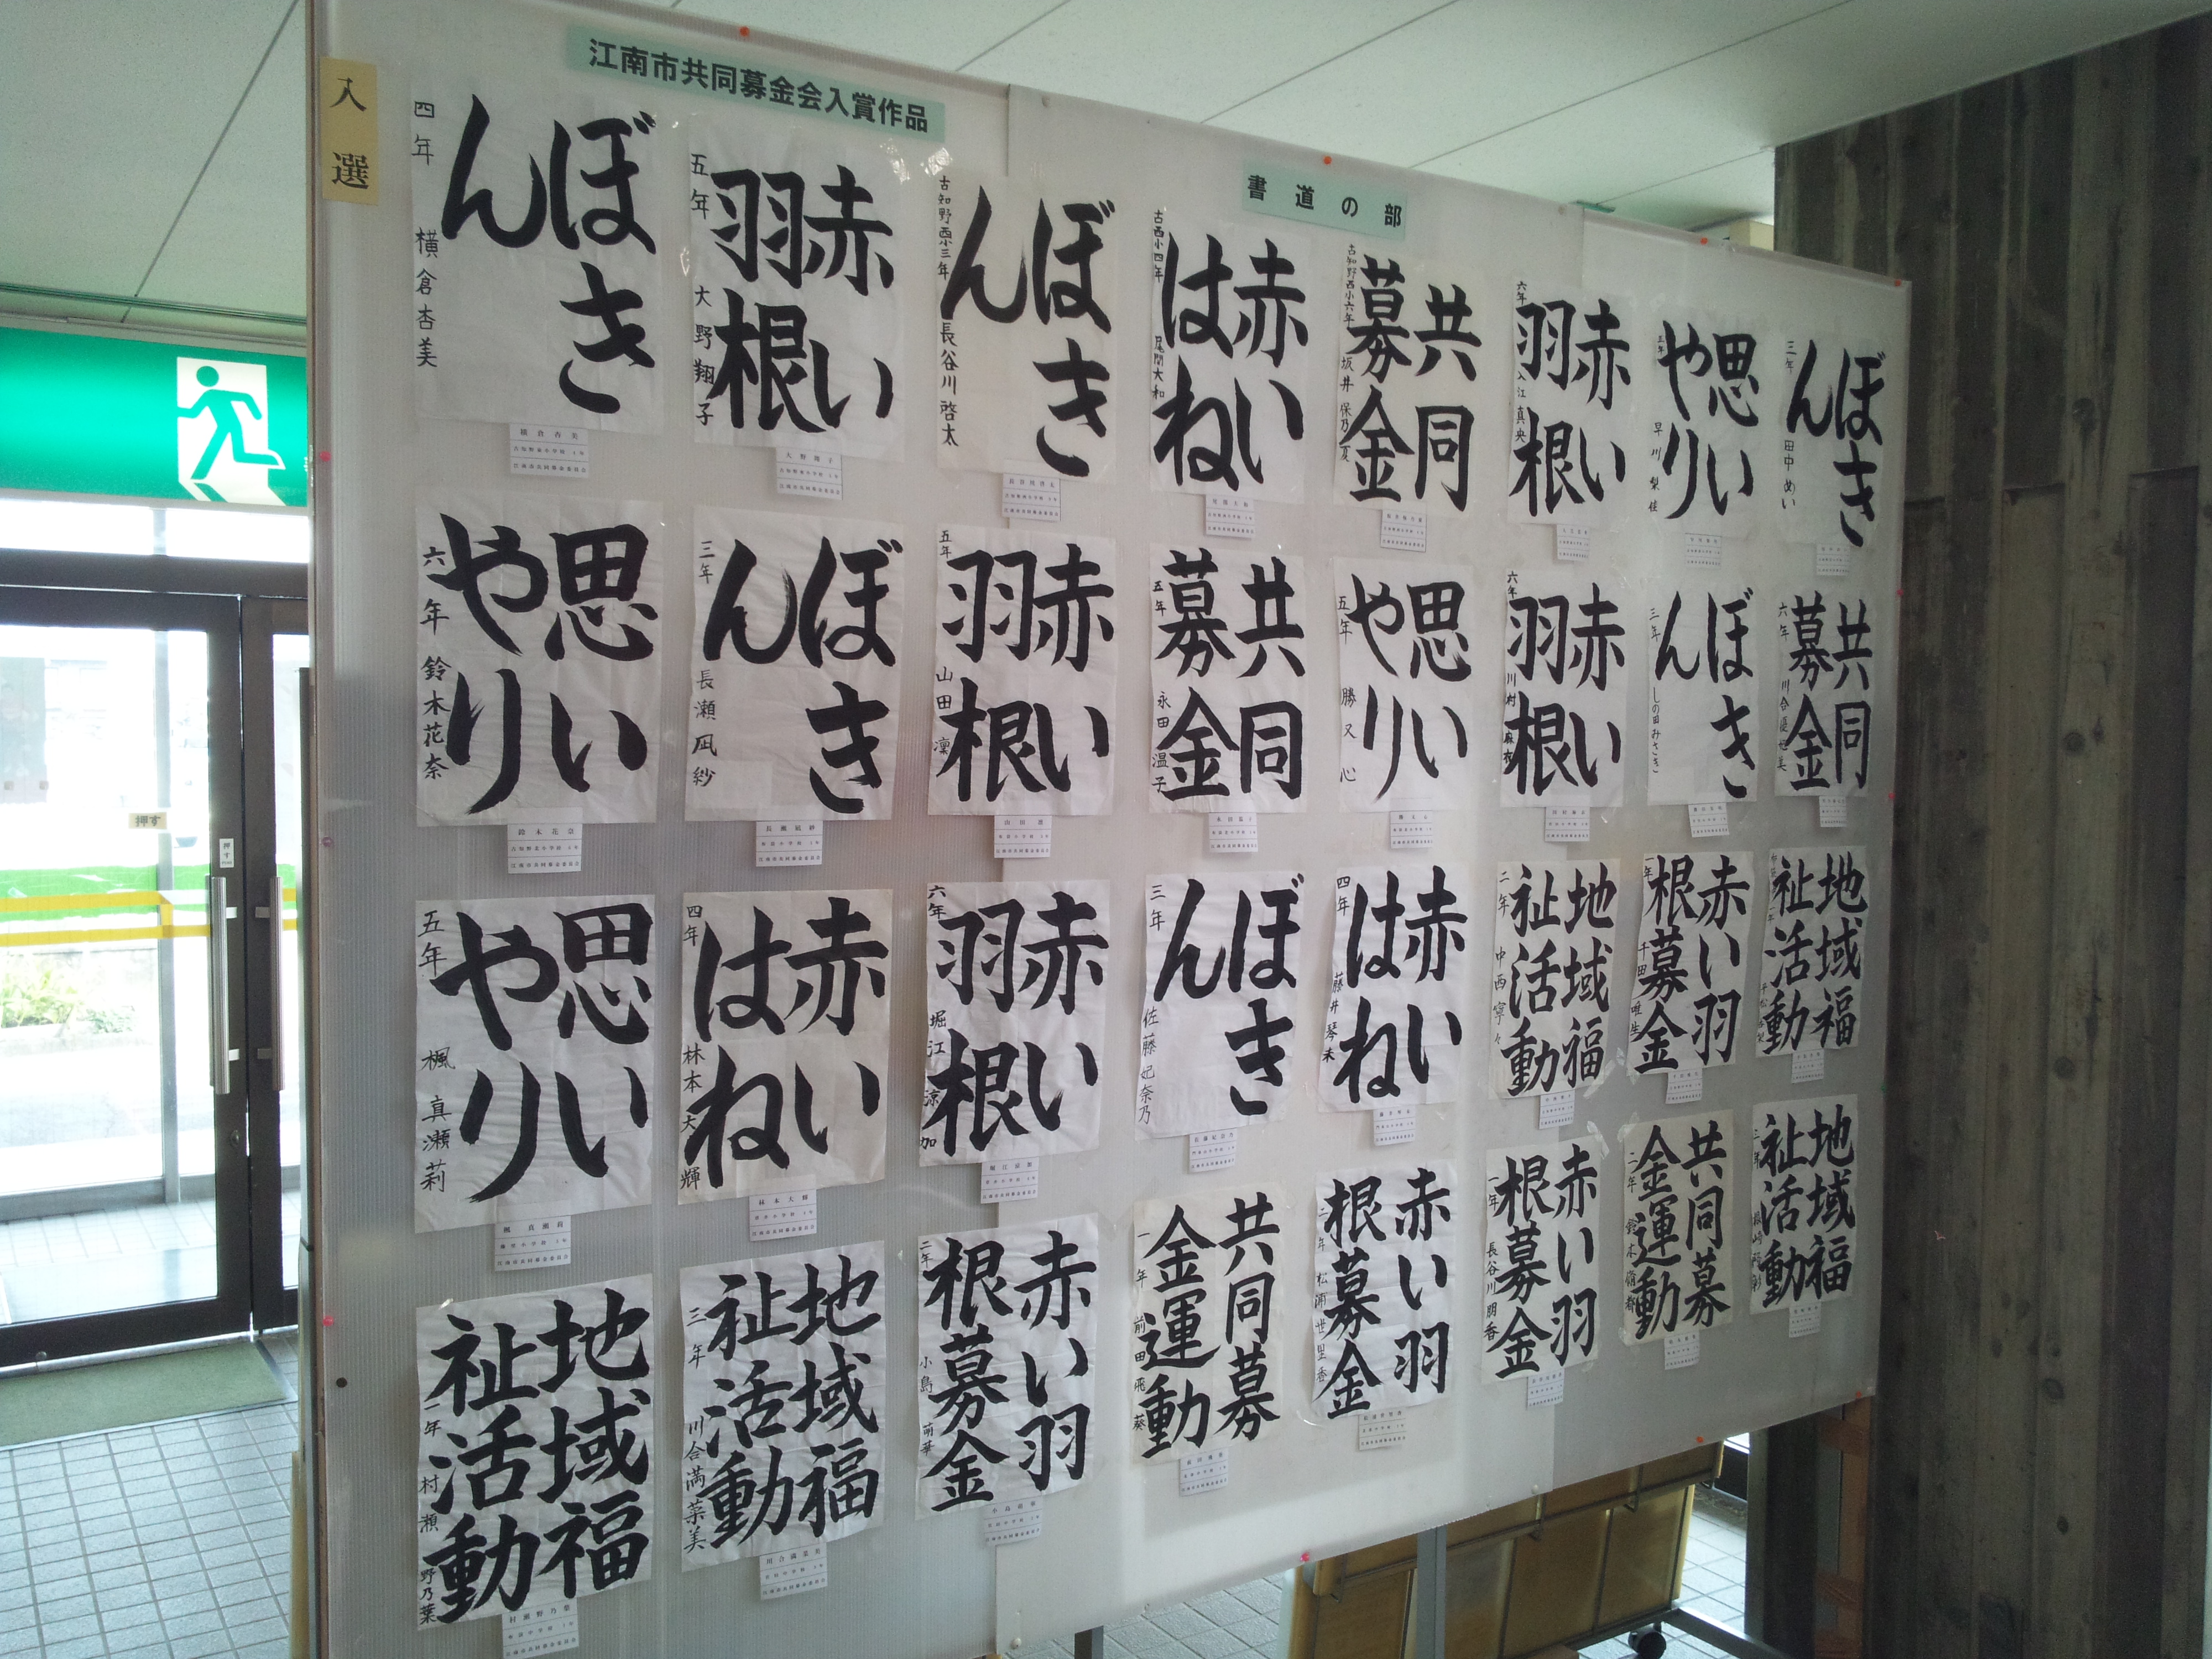 江南市共同募金会入賞作品
書道の部
入選
ぼきん
四年 横倉杏美
赤い羽根
五年 大野翔子
ぼきん
古知野西小三年 長谷川啓太
赤いはね
古西小四年 尾関大和
共同募金
古知野西小六年 坂井保乃夏
赤い羽根
六年 入江真央
思いやり
五年 早川梨佳
ぼきん
三年 田中めい
思いやり
六年 鈴木花奈
ぼきん
三年 長瀬凪紗
赤い羽根
五年 山田凜
共同募金
五年 永田温子
思いやり
五年 勝又心
赤い羽根
六年 川村麻衣
ぼきん
三年 しの田みさき
共同募金
六年 川合優
思いやり
五年 楓真瀬莉
赤いはね
四年 林本大輝
赤い羽根
六年 堀江涼加
ぼきん
三年 佐藤妃奈乃
赤いはね
四年 藤井琴未
地域福祉活動
二年 中西寧々
赤い羽根募金
一年 千田唯生
地域福祉活動
地域福祉活動
一年 村瀬野乃葉
地域福祉活動
三年 川合満菜美
赤い羽根募金
二年 小島萌華
共同募金運動
一年 前田飛葵
赤い羽根募金
二年 松浦世里香
赤い羽根募金
一年 長谷川朋香
共同募金運動
二年 鈴木
地域福祉活動
三年
押す
押す